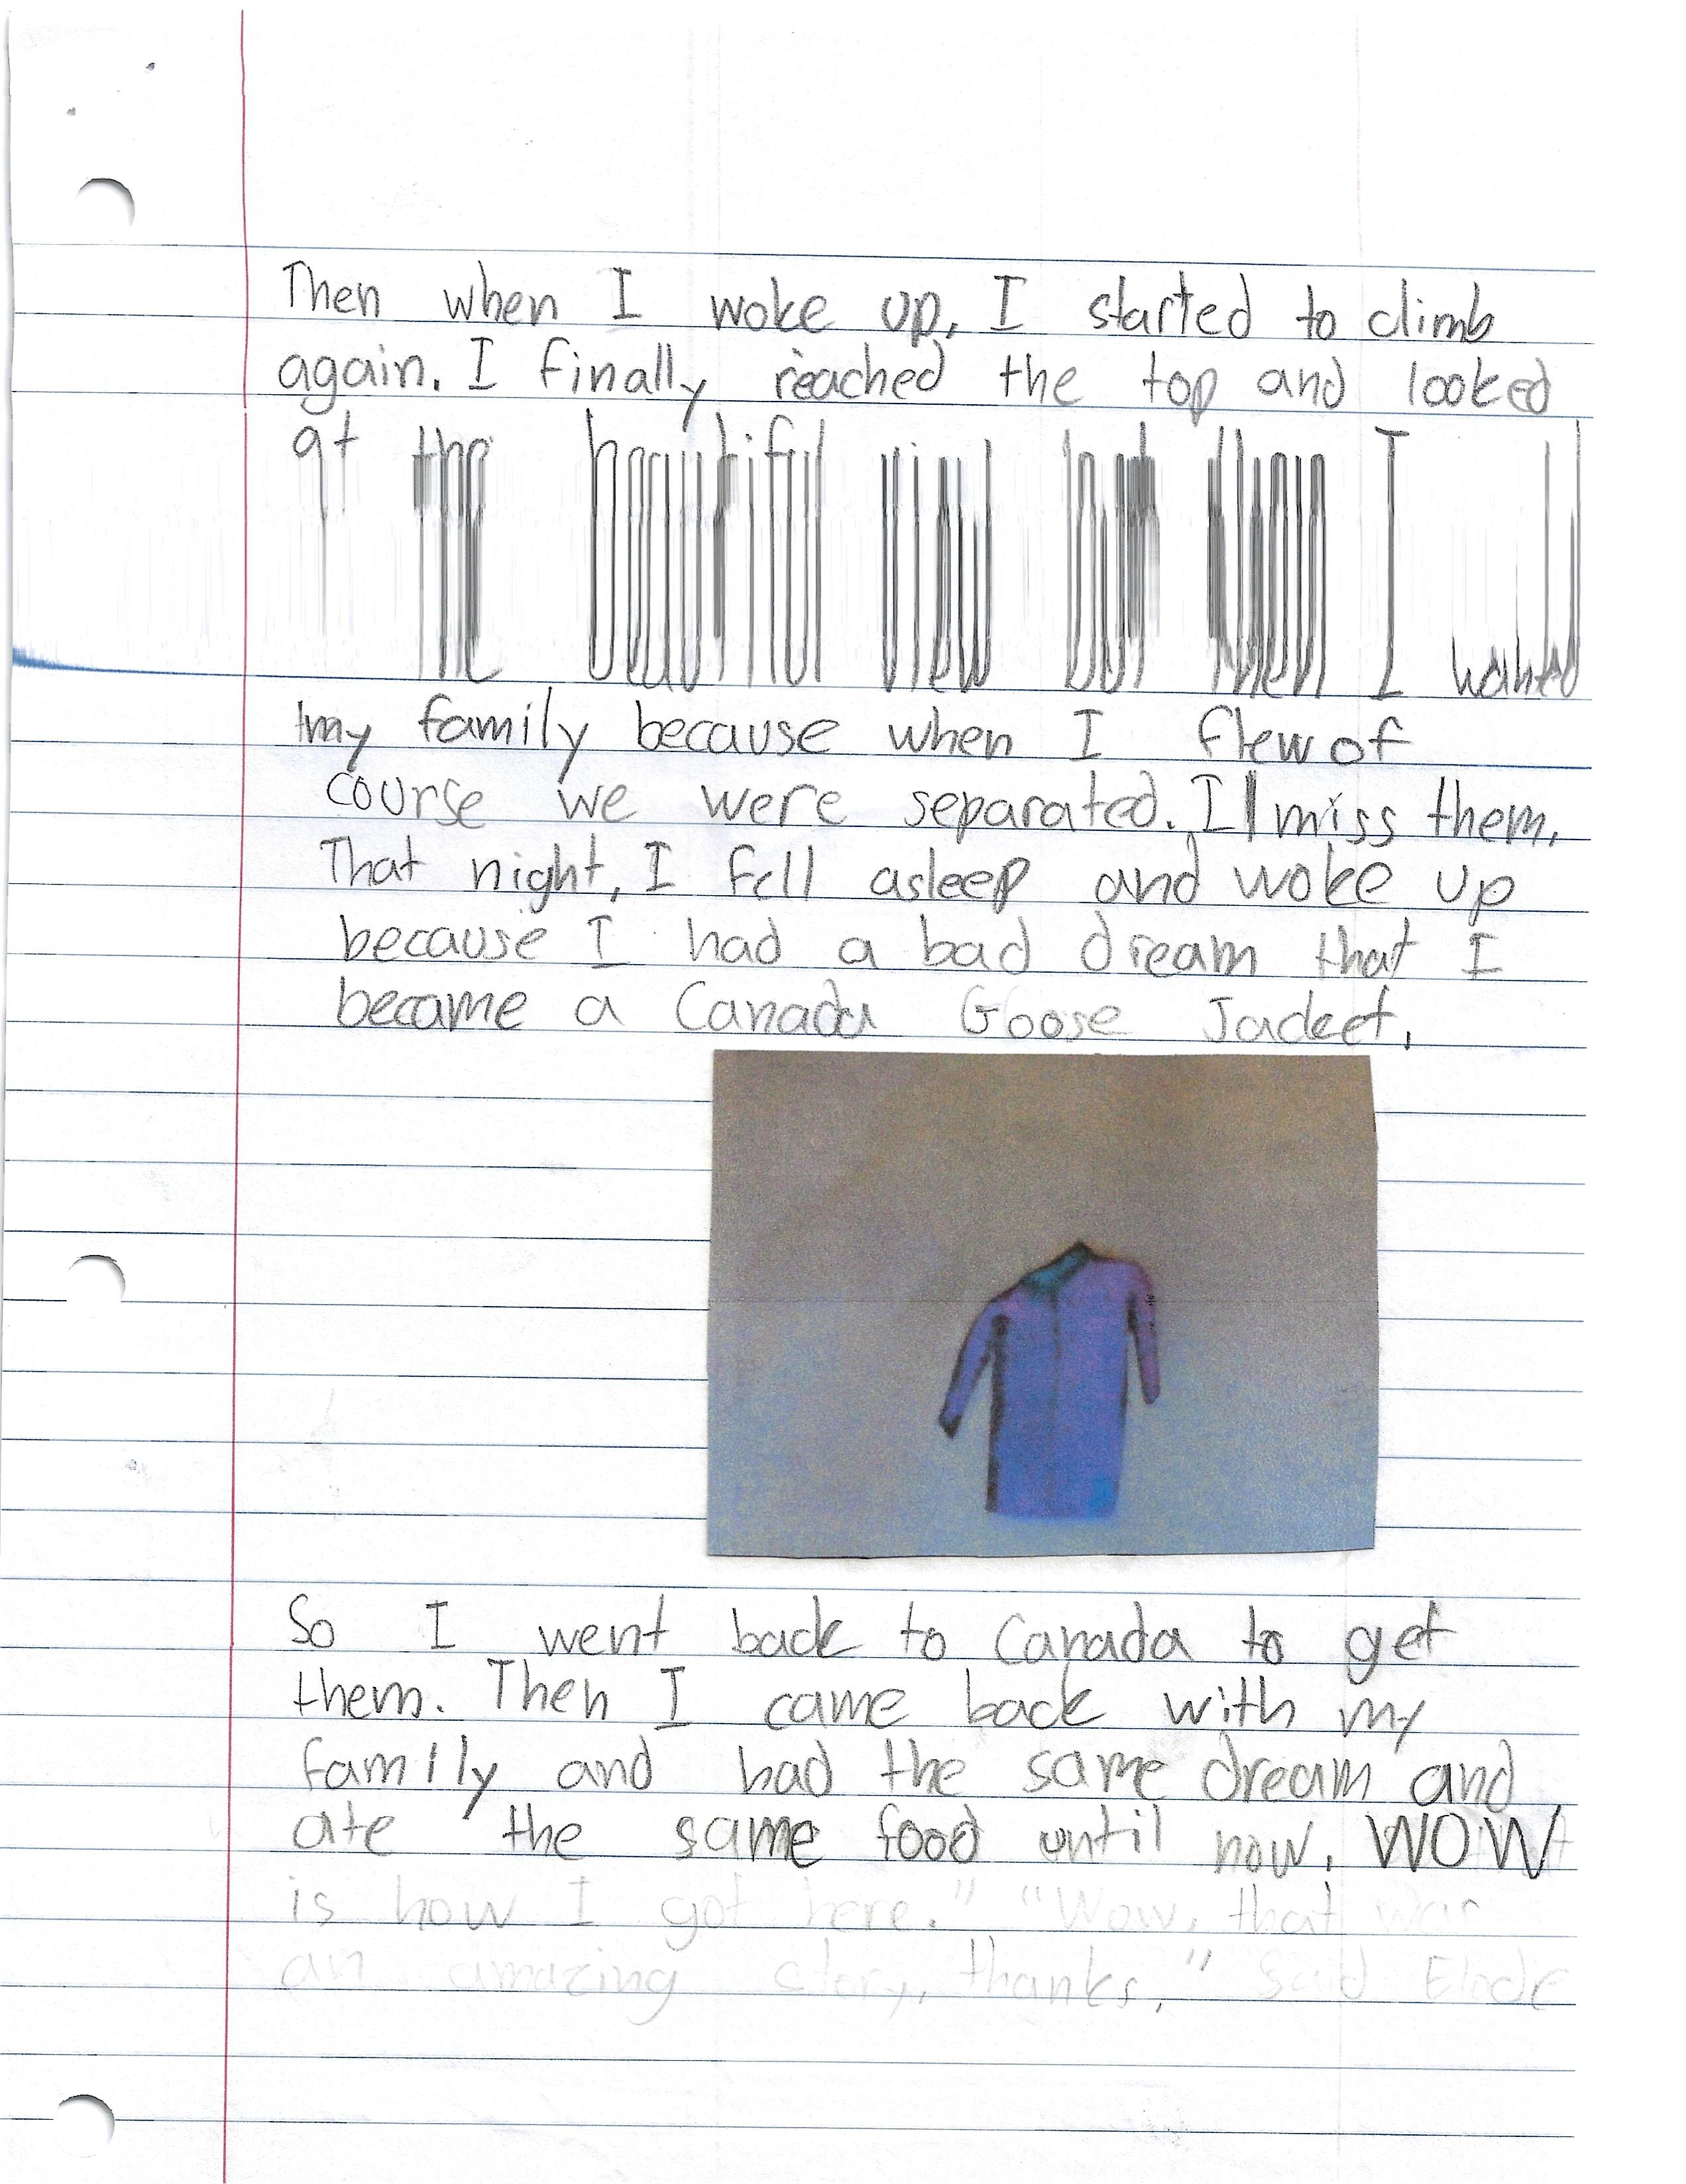 Then when I woke up, I started to climb
again. I finally reached the top and looked
at the beautiful view but then I wanted
my family because when I flew of
course we were separated. I miss them.
That night, I fell asleep and woke up
because I had a bad dream that I
became a Canada Goose Jacket.
So I went back to Canada to get
them. Then I came back with my
family and had the same dream and
ate the same food until now. WOW
is how I got here." "Wow, that was
an amazing story, thanks," said Elode